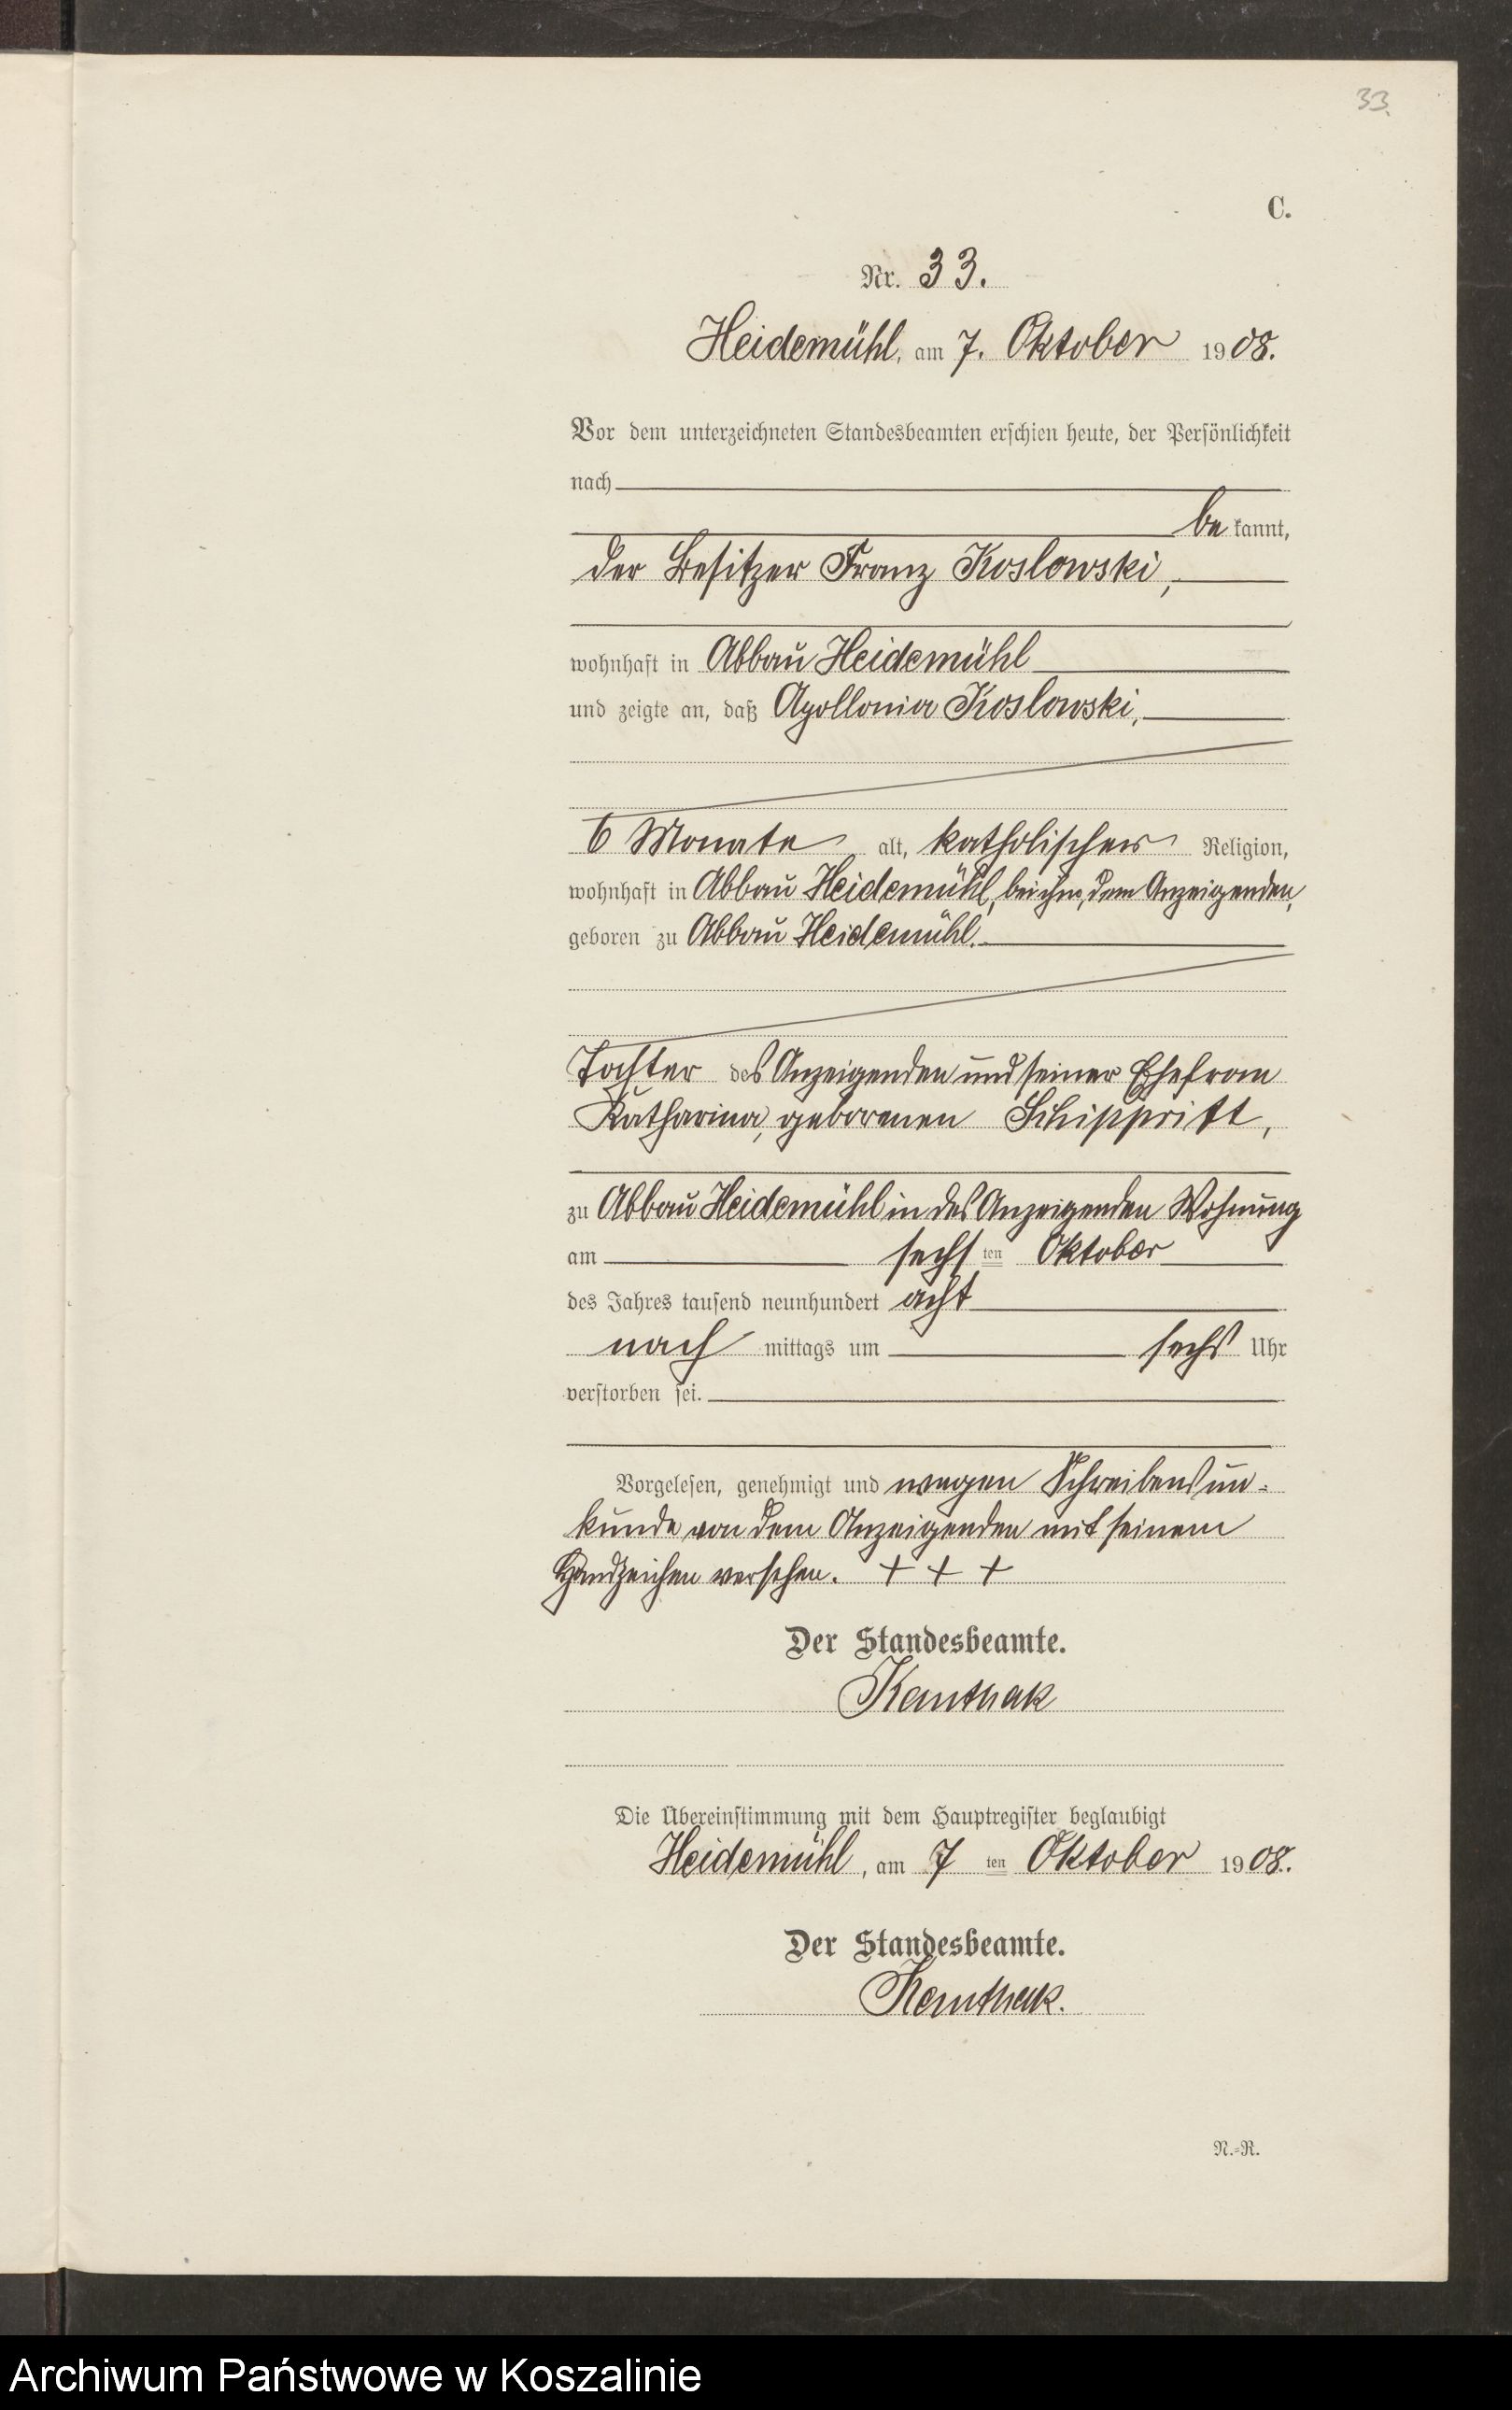 33.
C.
Nr. 33.
Heidemühl, am 7. Oktober 1908.
Vor dem unterzeichneten Standesbeamten erschien heute, der Persönlichkeit
nach
be kannt,
der Besitzer Franz Koslowski,
wohnhaft in Abbau Heidemühl
und zeigte an, daß Apollonia Koslowski,
6 Monate alt, katholischer Religion,
wohnhaft in Abbau Heidemühl, bei ihm, dem Anzeigenden,
geboren zu Abbau Heidemühl.
Tochter des Anzeigenden und seiner Ehefrau
Katharina, geborenen Schippritt,
zu Abbau Heidemühl in des Anzeigenden Wohnung
am sechsten Oktober
des Jahres tausend neunhundert acht
nach mittags um sechs Uhr
verstorben sei.
Vorgelesen, genehmigt und wegen Schreibensun-
kunde von dem Anzeigenden mit seinem
Handzeichen versehen. + + +
Der Standesbeamte.
Die Übereinstimmung mit dem Hauptregister beglaubigt
Heidemühl, am 7ten Oktober 1908.
Der Standesbeamte.
N.-R.
Archiwum Państwowe w Koszalinie